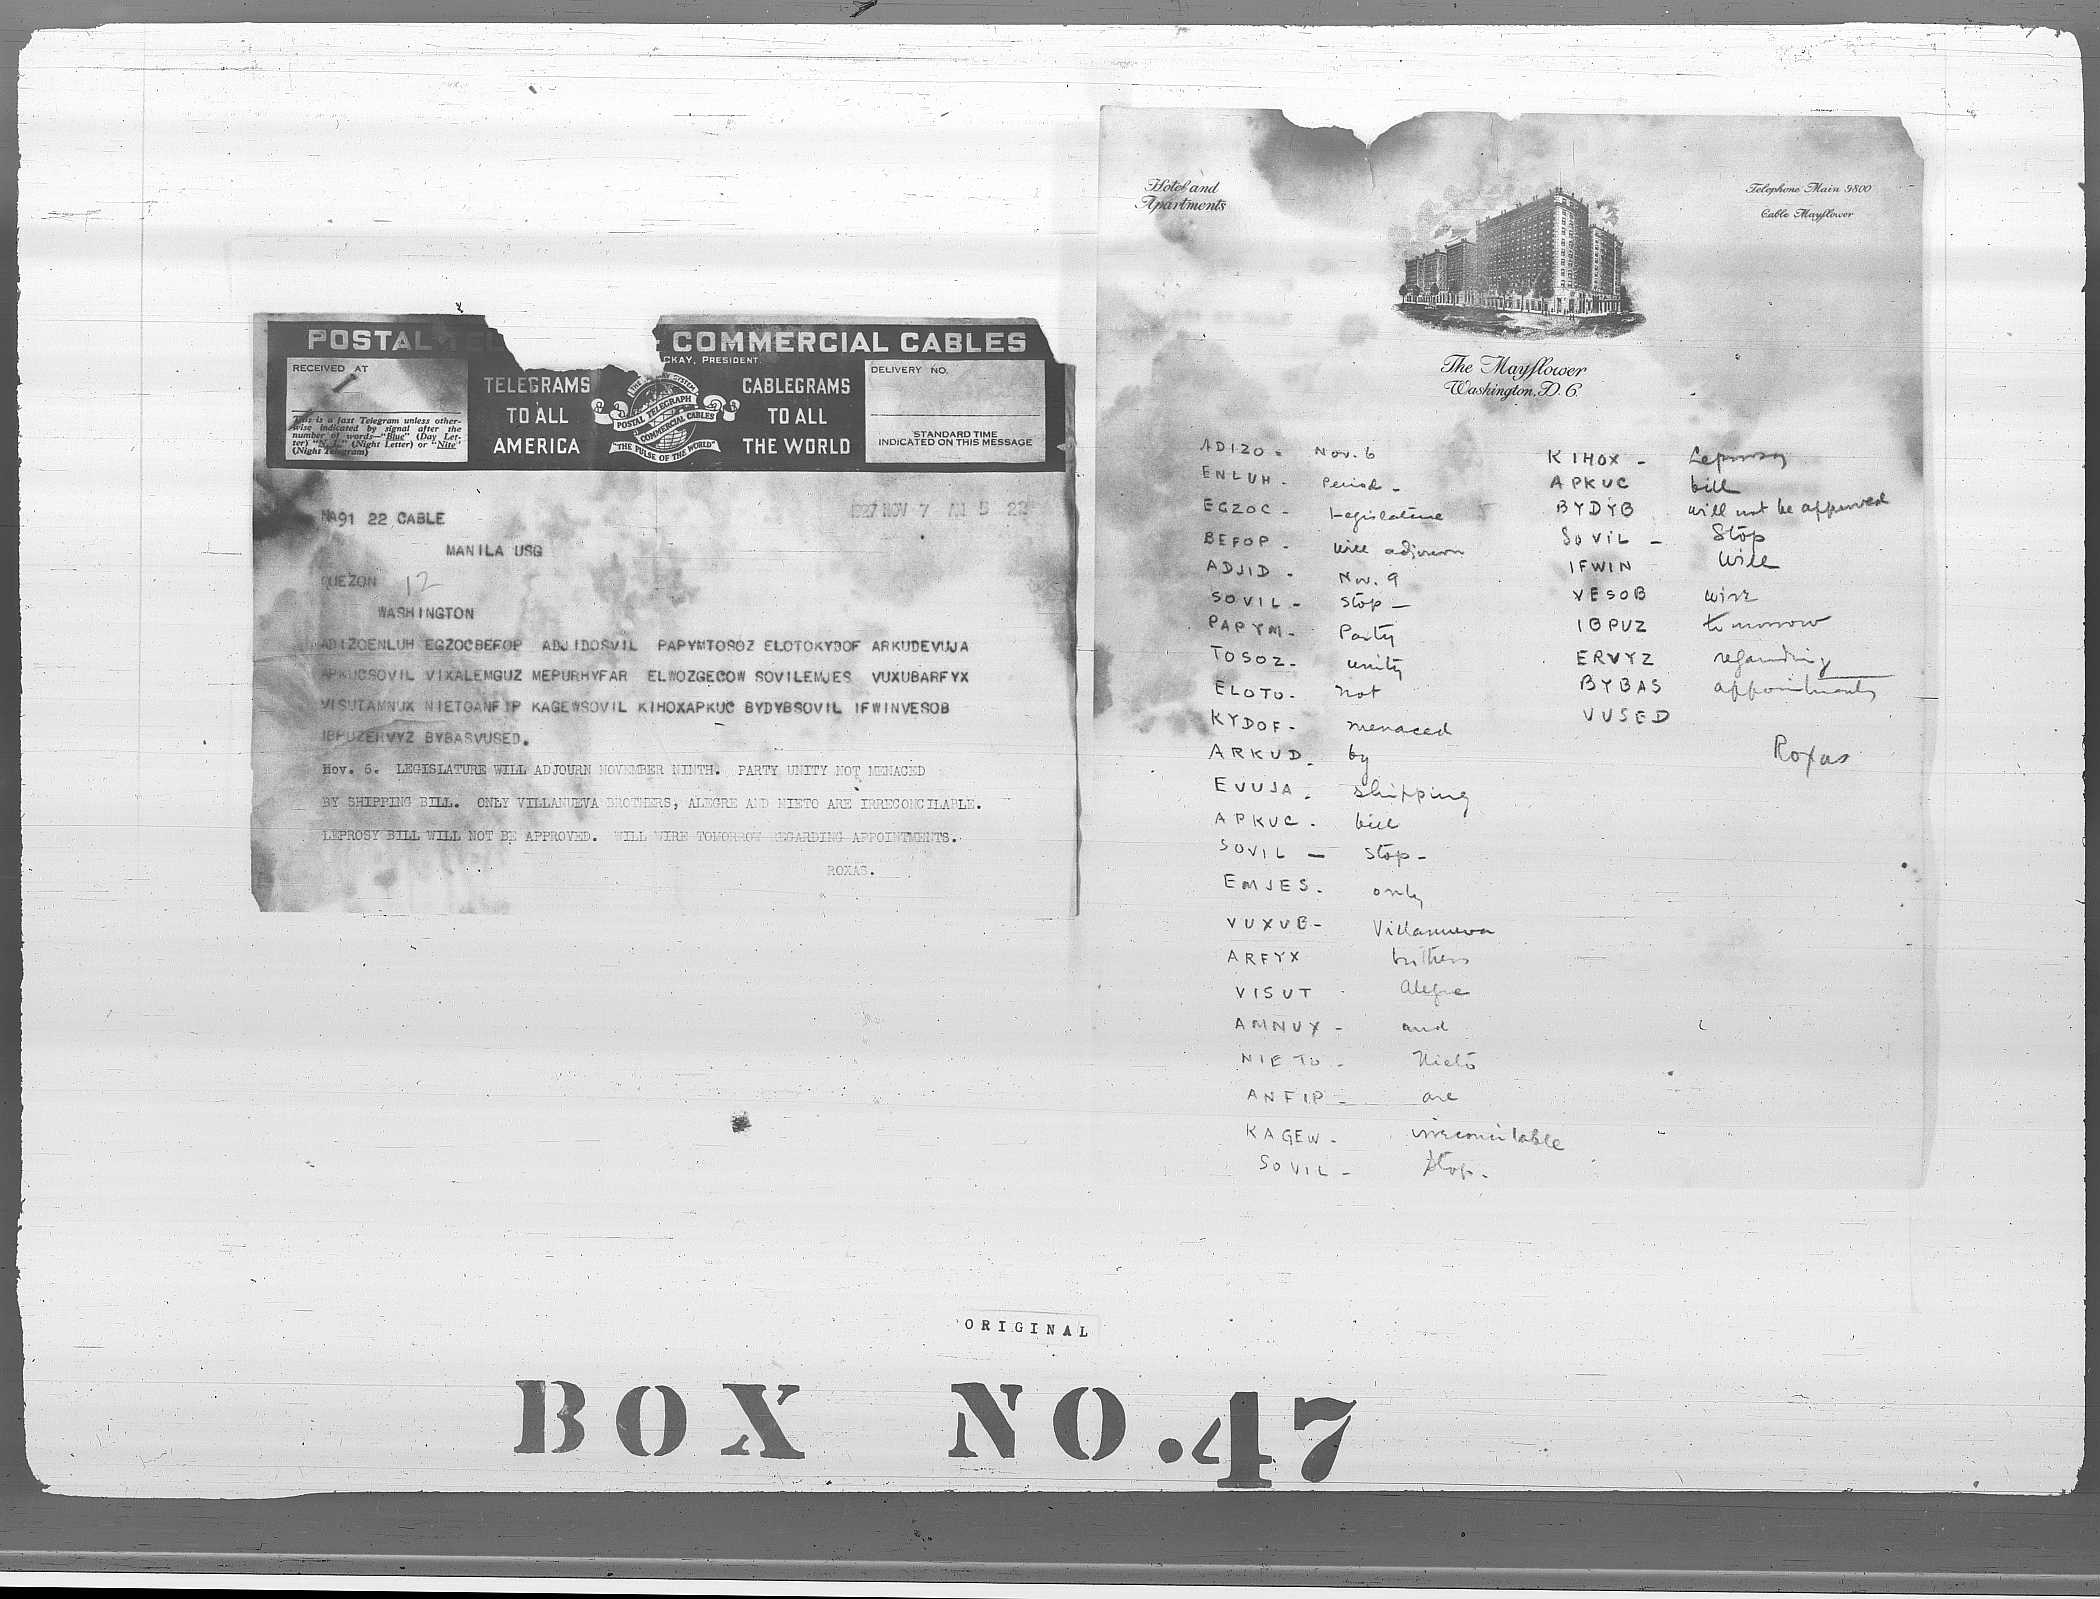 POSTAL TEL COMMERCIAL CABLES
CKAY, PRESIDENT.
RECEIVED AT
This is a fast Telegram unless other-
wise indicated by signal after the
number of words—"Blue" (Day Let-
ter) "N.L." (Night Letter) or "Nite"
(Night Telegram)
TELEGRAMS
TO ALL
AMERICA
POSTAL TELEGRAPH
COMMERCIAL CABLES
"THE PULSE OF THE WORLD"
CABLEGRAMS
TO ALL
THE WORLD
DELIVERY NO.
STANDARD TIME
INDICATED ON THIS MESSAGE
1927 NOV 7 AM 5 22
MA91 22 CABLE
MANILA USG
QUEZON 12
WASHINGTON
ADIZOENLUH EGZOCBEFOP ADJIDOSVIL PAPYMTOSOZ ELOTOKYDOF ARKUDEVUJA
APKUCSOVIL VIXALEMGUZ MEPURHYFAR ELWOZGECOW SOVILEMJES VUXUBARFYX
VISUTAMNUX NIETOANFIP KAGEWSOVIL KIHOXAPKUC BYDYBSOVIL IFWINVESOB
IBPUZERVYZ BYBASVUSED.
Nov. 6. LEGISLATURE WILL ADJOURN NOVEMBER NINTH. PARTY UNITY NOT MENACED
BY SHIPPING BILL. ONLY VILLANUEVA BROTHERS, ALEGRE AND NIETO ARE IRRECONCILABLE.
LEPROSY BILL WILL NOT BE APPROVED. WILL WIRE TOMORROW REGARDING APPOINTMENTS.
ROXAS.
Hotel and
Apartments
Telephone Main 9800
Cable Mayflower
The Mayflower
Washington, D. C.
ADIZO - Nov. 6
ENLUH - Period -
EGZOC - Legislature
BEFOP - will adjourn
ADJID - Nov. 9
SOVIL - Stop -
PAPYM - Party
TOSOZ - unity
ELOTO - not
KYDOF - menaced
ARKUD - by
EVUJA - shipping
APKUC - bill
SOVIL - Stop -
EMJES - only
VUXUB - Villanueva
ARFYX brothers
VISUT - Alegre
AMNUX - and
NIETO - Nieto
ANFIP - are
KAGEW - irreconcilable
SOVIL - Stop -
KIHOX - Leprosy
APKUC bill
BYDYB will not be approved
SOVIL - Stop
IFWIN will
VESOB wire
IBPUZ tomorrow
ERVYZ regarding
BYBAS appointments
VUSED
Roxas
ORIGINAL
BOX NO. 47